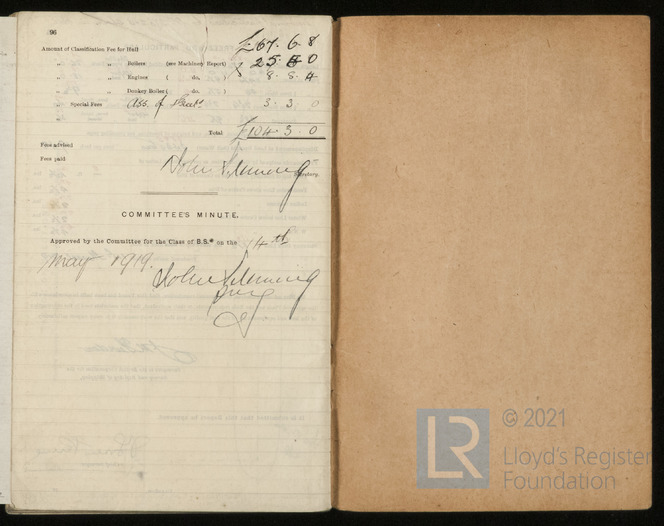 96
Amount of Classification Fee for Hull £67. 6. 8
„ „ Boilers (see Machinery Report) 25 0
„ „ Engines ( do. 8. 8. 4
„ „ Donkey Boiler ( do. )
„ Special Fees Ass. of 3. 3. 0
Total £104. 3. 0
Fees advised
Fees paid
John Fleming
Secretary.
COMMITTEE'S MINUTE.
Approved by the Committee for the Class of B.S.* on the 14th
May 1919.
John Fleming
LR
© 2021
Lloyd's Register
Foundation